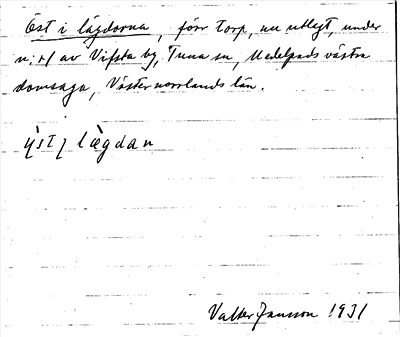 Öst i lägdorna, förr torp, nu utlagt, under
n:r 1 av Vifsta by, Tuna sn, Medelpads västra
domsaga, Västernorrlands län.
ỳst ị læ̀gdan
Valter Jansson 1931